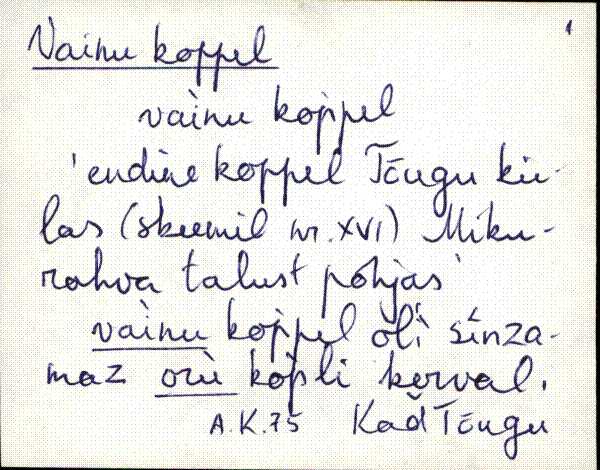 1
Vainu koppel
vàinu kop̀pel
'endine koppel Tõugu kü-
las (skeemil nr. XVI) Miku-
rahva talust põhjas'
vàinu kop̀pel oĺì sínza-
maz orù kop̀li kerval.
A.K.75 Kad Tõugu